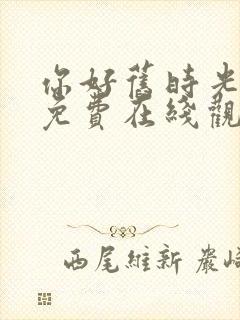 你好舊時光
免費在綫觀
西尾維新 嚴崎